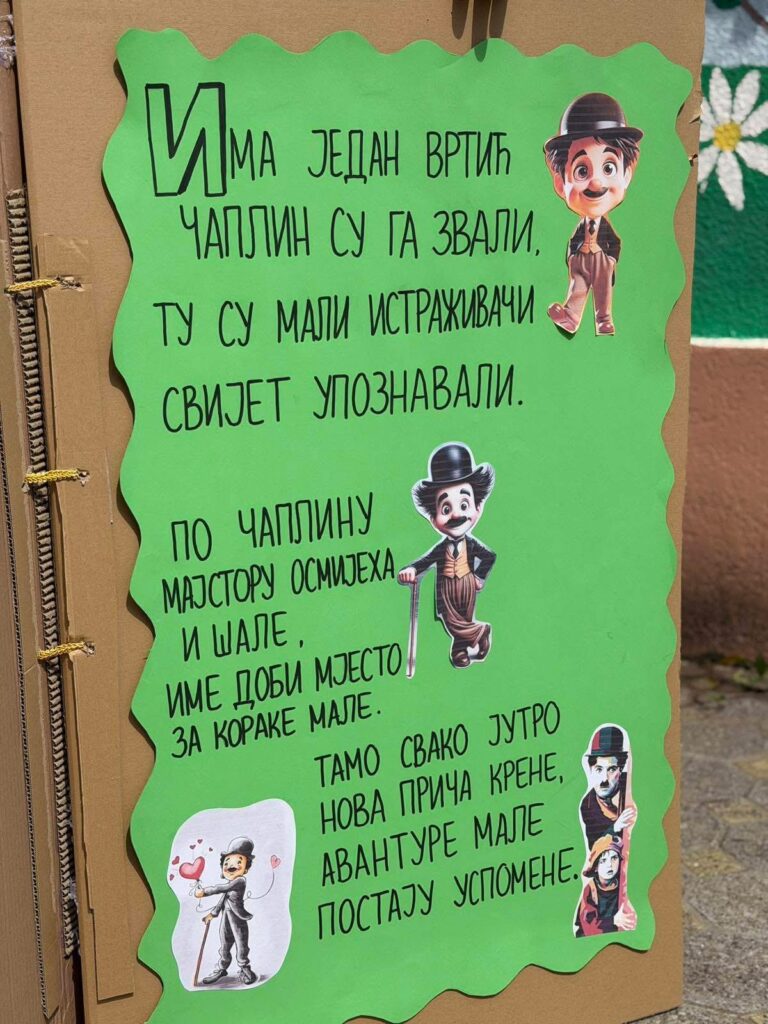 ИМА ЈЕДАН ВРТИЋ
ЧАПЛИН СУ ГА ЗВАЛИ,
ТУ СУ МАЛИ ИСТРАЖИВАЧИ
СВИЈЕТ УПОЗНАВАЛИ.
ПО ЧАПЛИНУ
МАЈСТОРУ ОСМИЈЕХА
И ШАЛЕ,
ИМЕ ДОБИ МЈЕСТО
ЗА КОРАКЕ МАЛЕ.
ТАМО СВАКО ЈУТРО
НОВА ПРИЧА КРЕНЕ,
АВАНТУРЕ МАЛЕ
ПОСТАЈУ УСПОМЕНЕ.